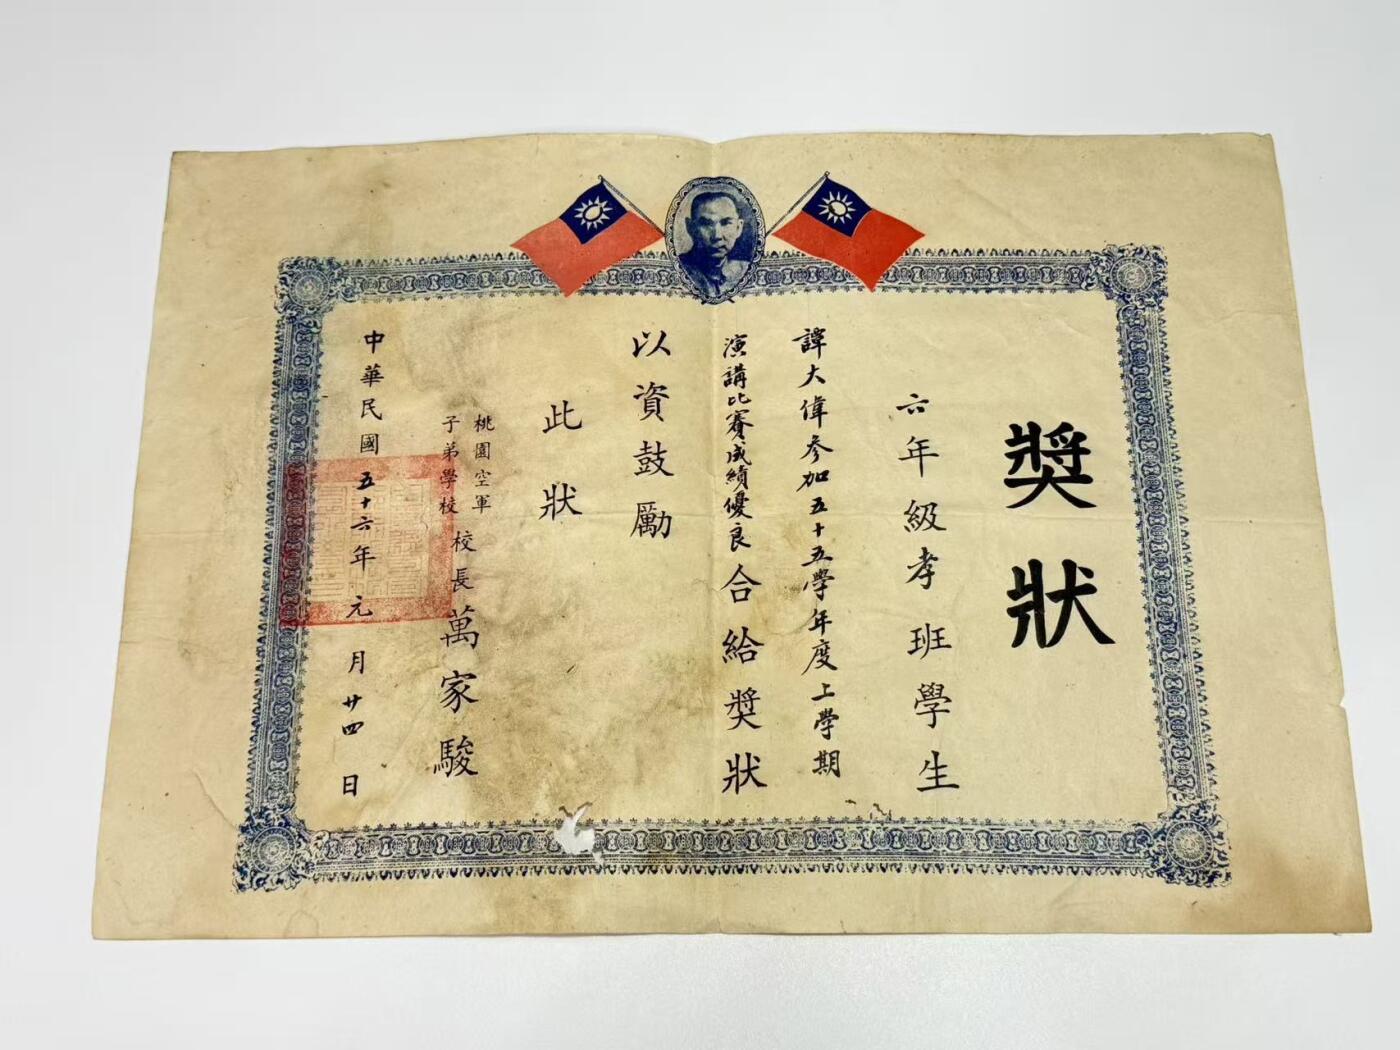 獎狀
六年級孝班學生
譚大偉參加五十五學年度上學期
演講比賽成績優良合給獎狀
以資鼓勵
此狀
桃園空軍
子弟學校
校長萬家駿
中華民國五十六年元月廿四日